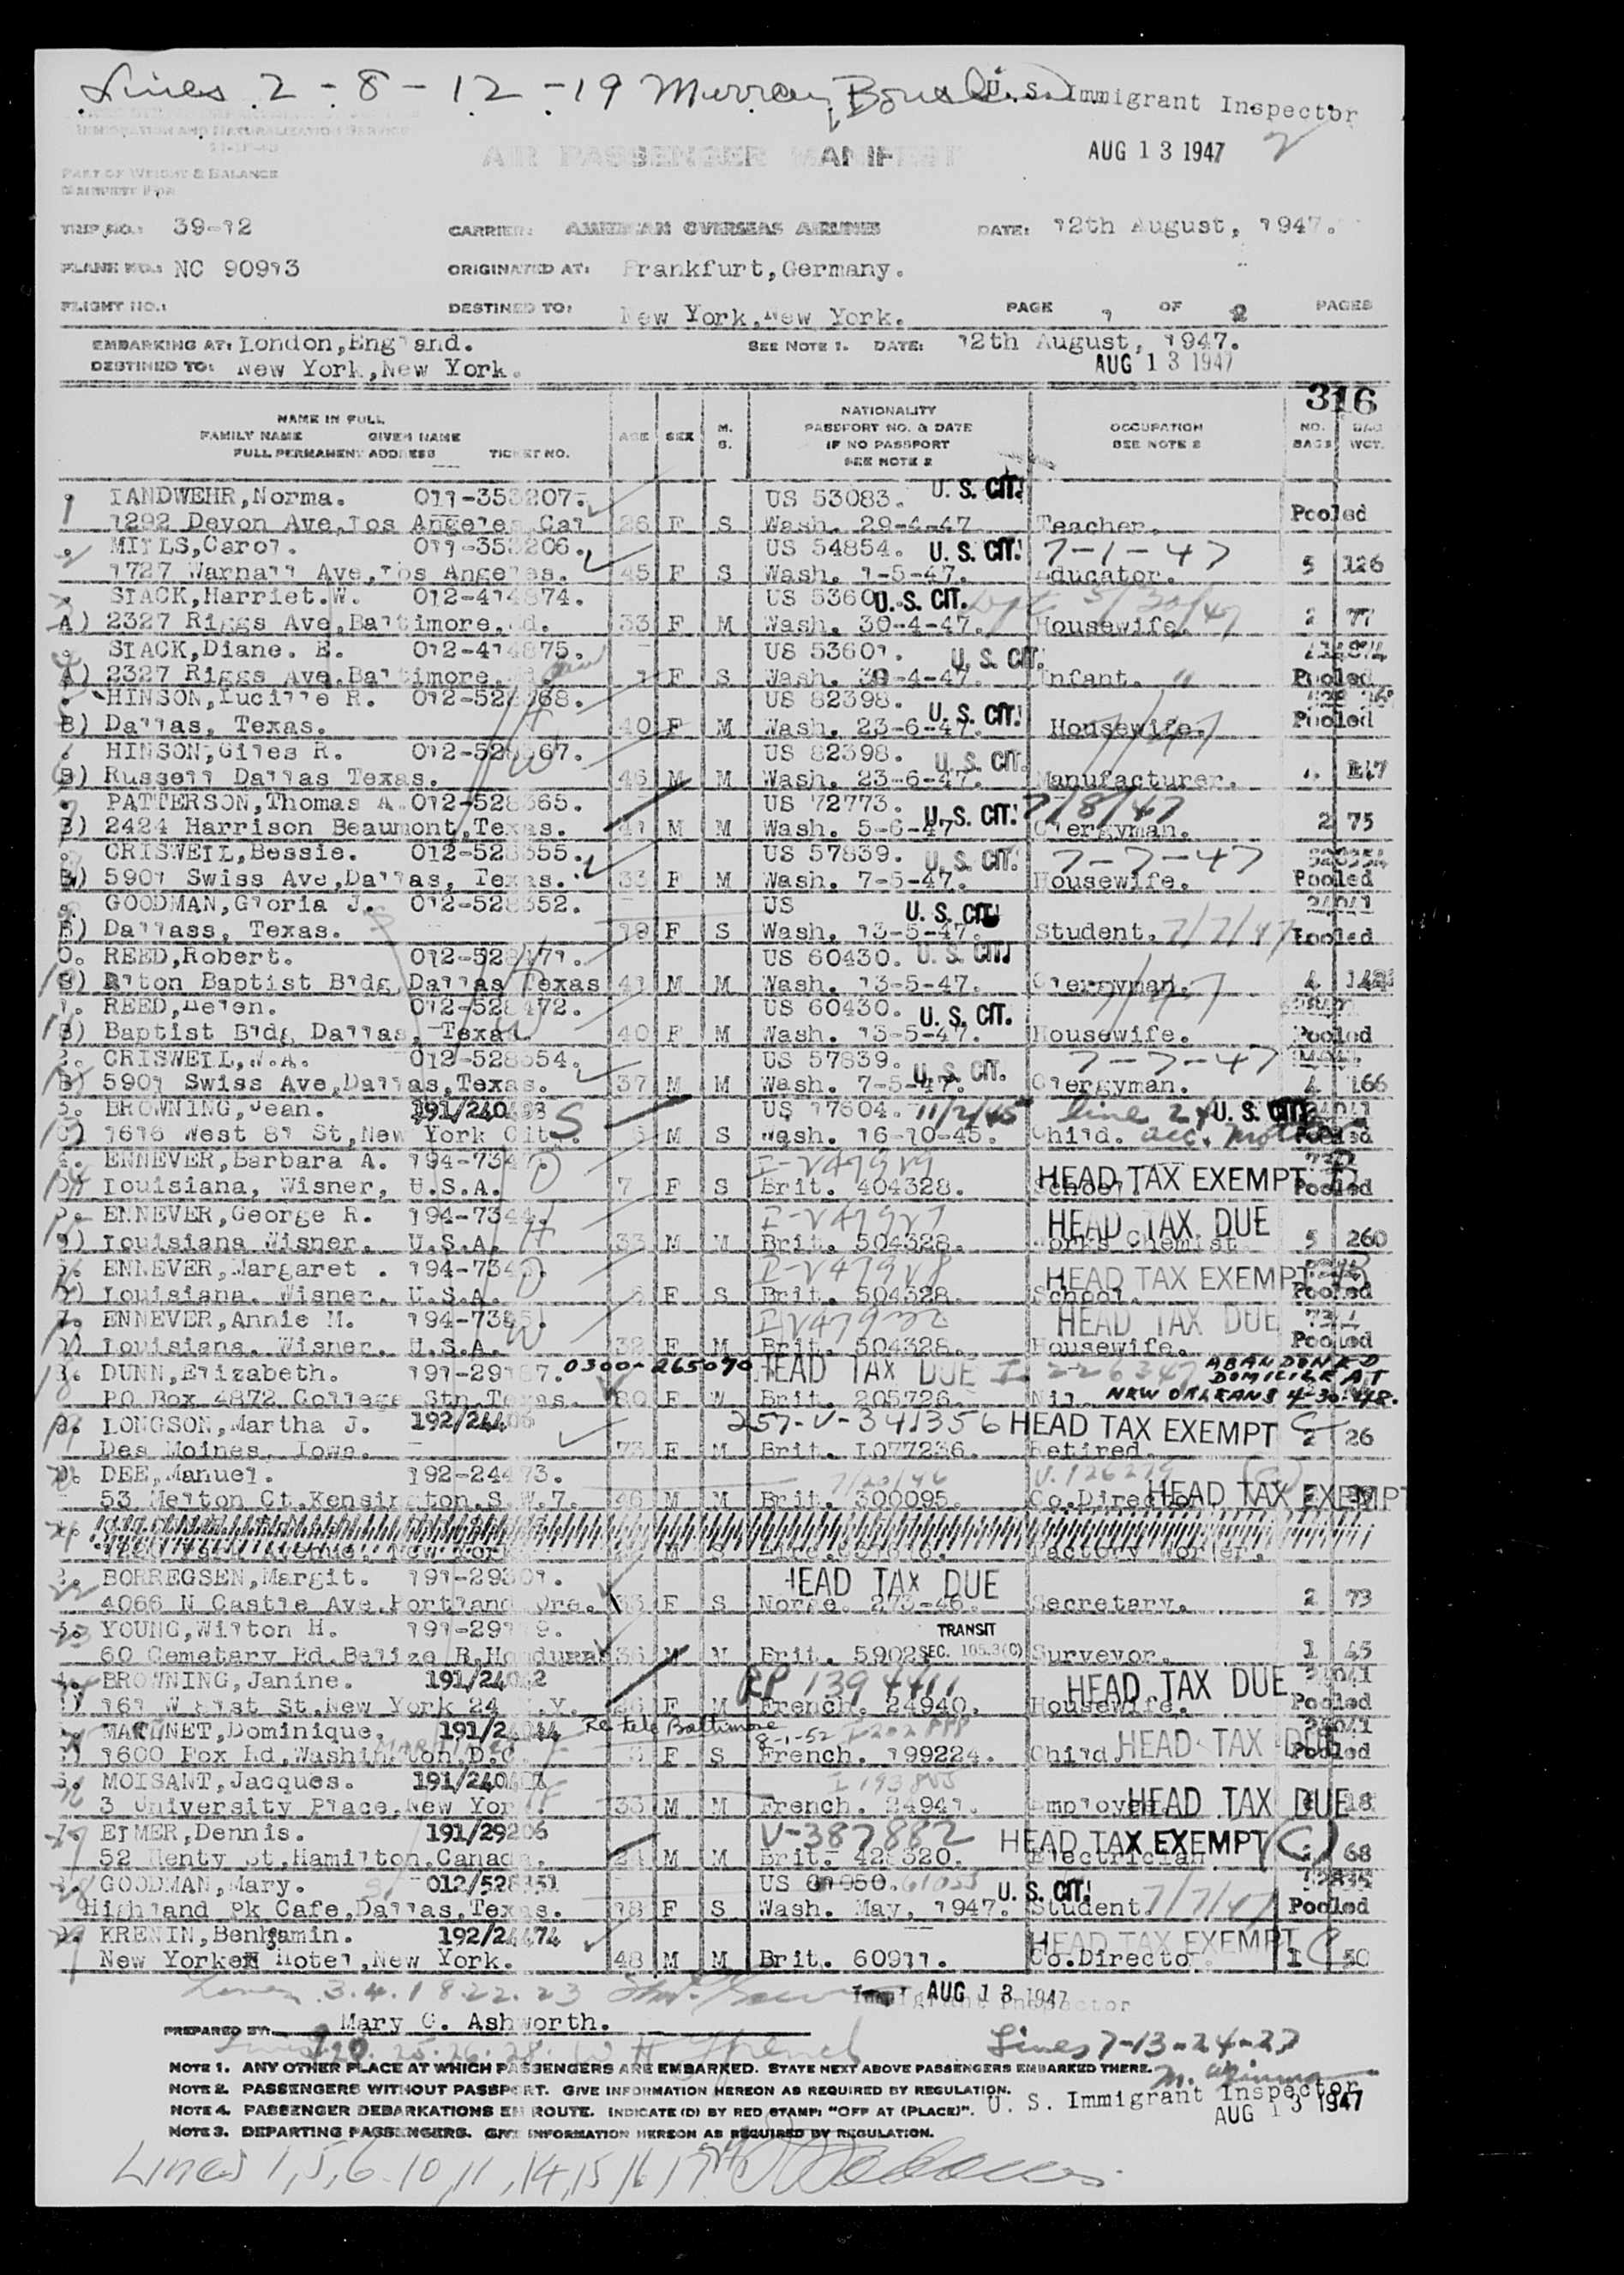 Lines 2-8-12-19 Murray U.S. Immigrant Inspector
IMMIGRATION AND NATURALIZATION SERVICE
AIR PASSENGER MANIFEST
AUG 13 1947 2
PART OF WEIGHT & BALANCE
MANIFEST FOR
TRIP NO.: 39-12 CARRIER: AMERICAN OVERSEAS AIRLINES DATE: 12th August, 1947.
PLANE NO.: NC 90913 ORIGINATED AT: Frankfurt,Germany.
FLIGHT NO.: DESTINED TO: New York,New York. PAGE 1 OF 2 PAGES
EMBARKING AT: London,England. SEE NOTE 1. DATE: 12th August, 1947.
DESTINED TO: New York,New York. AUG 13 1947
316
NAME IN FULL
FAMILY NAME GIVEN NAME
FULL PERMANENT ADDRESS TICKET NO.
AGE SEX M. S.
NATIONALITY
PASSPORT NO. & DATE
IF NO PASSPORT
SEE NOTE 2
OCCUPATION
SEE NOTE 2
NO. BAGS BAG WGT.
1 LANDWEHR,Norma. 011-353207. US 53083. U. S. CIT.
1292 Devon Ave,Los Angeles Cal 26 F S Wash. 29-4-47 Teacher. Pooled
2 MILLS,Carol. 011-353206. US 54854. U. S. CIT. 7-1-47
1727 Warnall Ave,Los Angeles. 45 F S Wash. 1-5-47. Educator. 5 126
SLACK,Harriet.W. 012-414874. US 5360 U. S. CIT.
A) 2327 Riggs Ave,Baltimore, Md. 33 F M Wash. 30-4-47. Housewife. 2 77
SLACK,Diane. E. 012-414875. US 53601. U. S. CIT.
A) 2327 Riggs Ave,Baltimore. 1 F S Wash. 30-4-47. Infant. " Pooled
HINSON,Lucille R. 012-528368. US 82398. U. S. CIT.
B) Dallas, Texas. W 40 F M Wash. 23-6-47. Housewife. Pooled
HINSON,Giles R. 012-528367. US 82398. U. S. CIT.
B) Russell Dallas Texas. 46 M M Wash. 23-6-47. Manufacturer.
PATTERSON,Thomas A. 012-528365. US 72773. U. S. CIT. 7/8/47
B) 2424 Harrison Beaumont,Texas. 41 M M Wash. 5-6-47 Clergyman. 2 75
CRISWELL,Bessie. 012-528355. US 57839. U. S. CIT. 7-7-47
B) 5901 Swiss Ave,Dallas, Texas. 33 F M Wash. 7-5-47. Housewife. Pooled
GOODMAN,Gloria J. 012-528352. US U. S. CIT.
B) Dallass, Texas. 19 F S Wash. 13-5-47. Student. 7/7/47 Pooled
REED,Robert. 012-528471. US 60430. U. S. CIT.
B) Baptist Bldg,Dallas Texas 41 M M Wash. 13-5-47. Clergyman. 4
REED,Helen. 012-528472. US 60430. U. S. CIT.
B) Baptist Bldg Dallas, Texas 40 F M Wash. 13-5-47. Housewife. Pooled
CRISWELL,W.A. 012-528354. US 57839. U. S. CIT. 7-7-47
B) 5901 Swiss Ave,Dallas,Texas. 37 M M Wash. 7-5-47. Clergyman. 4 166
BROWNING,Jean. S US 17604. 11/2/45 line 24 U. S. CIT.
1616 West 81 St,New York City. M S Wash. 16-10-45. Child. Pooled
ENNEVER,Barbara A. D HEAD TAX EXEMPT
Louisiana, Wisner, U.S.A. 7 F S Brit. 404328. School Pooled
ENNEVER,George R. H HEAD TAX DUE
Louisiana Wisner. U.S.A. 33 M M Brit. 504328. Works Chemist 5 260
ENNEVER,Margaret . D HEAD TAX EXEMPT
Louisiana. Wisner. U.S.A. F S Brit. 504328. School. Pooled
ENNEVER,Annie M. W HEAD TAX DUE
Louisiana. Wisner. U.S.A. 32 F M Brit. 504328. Housewife. Pooled
DUNN,Elizabeth. 0300-265070 HEAD TAX DUE ABANDONED DOMICILE AT
PO Box 4872 College Stn.Texas. 80 F W Brit. 205726. Nil. NEW ORLEANS 4-30-48.
LONGSON,Martha J. 192/24406 257-V-341356 HEAD TAX EXEMPT C
Des Moines, Iowa. 73 F M Brit. L077236. Retired. 2 26
DEE,Manuel. 192-24473. 7/20/46
53 Melton Ct.Kensington.S.W.7. 46 M M Brit. 300095. Co.Director HEAD TAX EXEMPT
BORREGSEN,Margit. 191-29301. HEAD TAX DUE
4066 N Castle Ave.Portland Ore. F S Norge. 273-46. Secretary. 2 73
YOUNG,Wilton H. TRANSIT
60 Cemetary Rd.Belize B.Honduras 36 M M Brit. 5902 SEC. 105.3(C) Surveyor. 1 45
BROWNING,Janine. 191/24042 RP 1394411 HEAD TAX DUE
161 W 81st St.New York 24 N.Y. 26 F M French. 24940. Housewife. Pooled
MARONET,Dominique. 191/24044 Re tele Baltimore 8-1-52
1600 Fox Ld,Washington D.C. F S French. 199224. Child HEAD TAX DUE Pooled
MOISANT,Jacques.
3 University Place,New York. 33 M M French. 24941. Employee HEAD TAX DUE 18
ELMER,Dennis. 191/29206 V-387882 HEAD TAX EXEMPT (C)
52 Henty St,Hamilton.Canada. 24 M M Brit. 428320. Electrician 68
GOODMAN,Mary. 012/528351 U. S. CIT.
Highland Pk Cafe,Dallas,Texas. 18 F S Wash. May, 1947. Student 7/7/47 Pooled
KRENIN,Benjamin. 192/24474 HEAD TAX EXEMPT C
New Yorker Hotel,New York. 48 M M Brit. 60911. Co.Director 1 50
Lines 3.4.18.22.23 Immigrant Inspector AUG 13 1947
PREPARED BY: Mary C. Ashworth.
Lines 7-13-24-27
NOTE 1. ANY OTHER PLACE AT WHICH PASSENGERS ARE EMBARKED. STATE NEXT ABOVE PASSENGERS EMBARKED THERE.
NOTE 2. PASSENGERS WITHOUT PASSPORT. GIVE INFORMATION HEREON AS REQUIRED BY REGULATION.
U. S. Immigrant Inspector
NOTE 4. PASSENGER DEBARKATIONS EN ROUTE. INDICATE (D) BY RED STAMP: "OFF AT (PLACE)".
AUG 13 1947
NOTE 3. DEPARTING PASSENGERS. GIVE INFORMATION HEREON AS REQUIRED BY REGULATION.
Lines 1,5,6 10,11,14,15,16,17